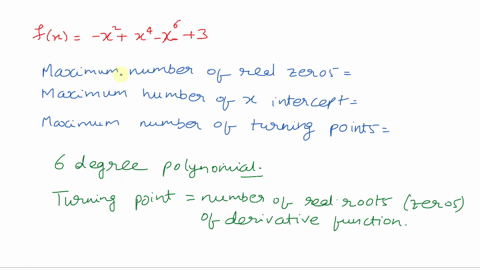 f(x) = -x² + x⁴ - x⁶ + 3
Maximum number of real zeros =
Maximum number of x intercept =
Maximum number of turning points =
6 degree polynomial.
Turning point = number of real roots (zeros)
of derivative function.